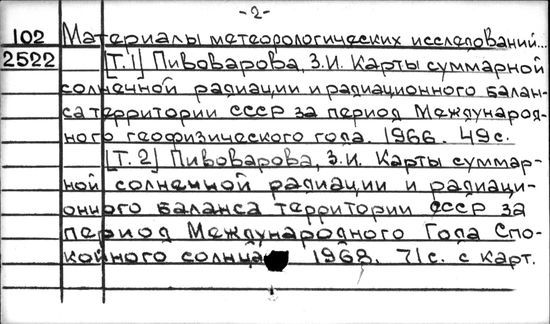 -2-
102 Материалы метеорологических исследований...
2522 [Т.1] Пивоварова, З.И. Карты суммарной
солнечной радиации и радиационного балан-
са территории СССР за период Международ-
ного геофизического года. 1966. 49 с.
[Т. 2] Пивоварова, З.И. Карты суммар-
ной солнечной радиации и радиаци-
онного баланса территории СССР за
период Международного Года Спо-
койного солнца 1968. 71 с. с карт.